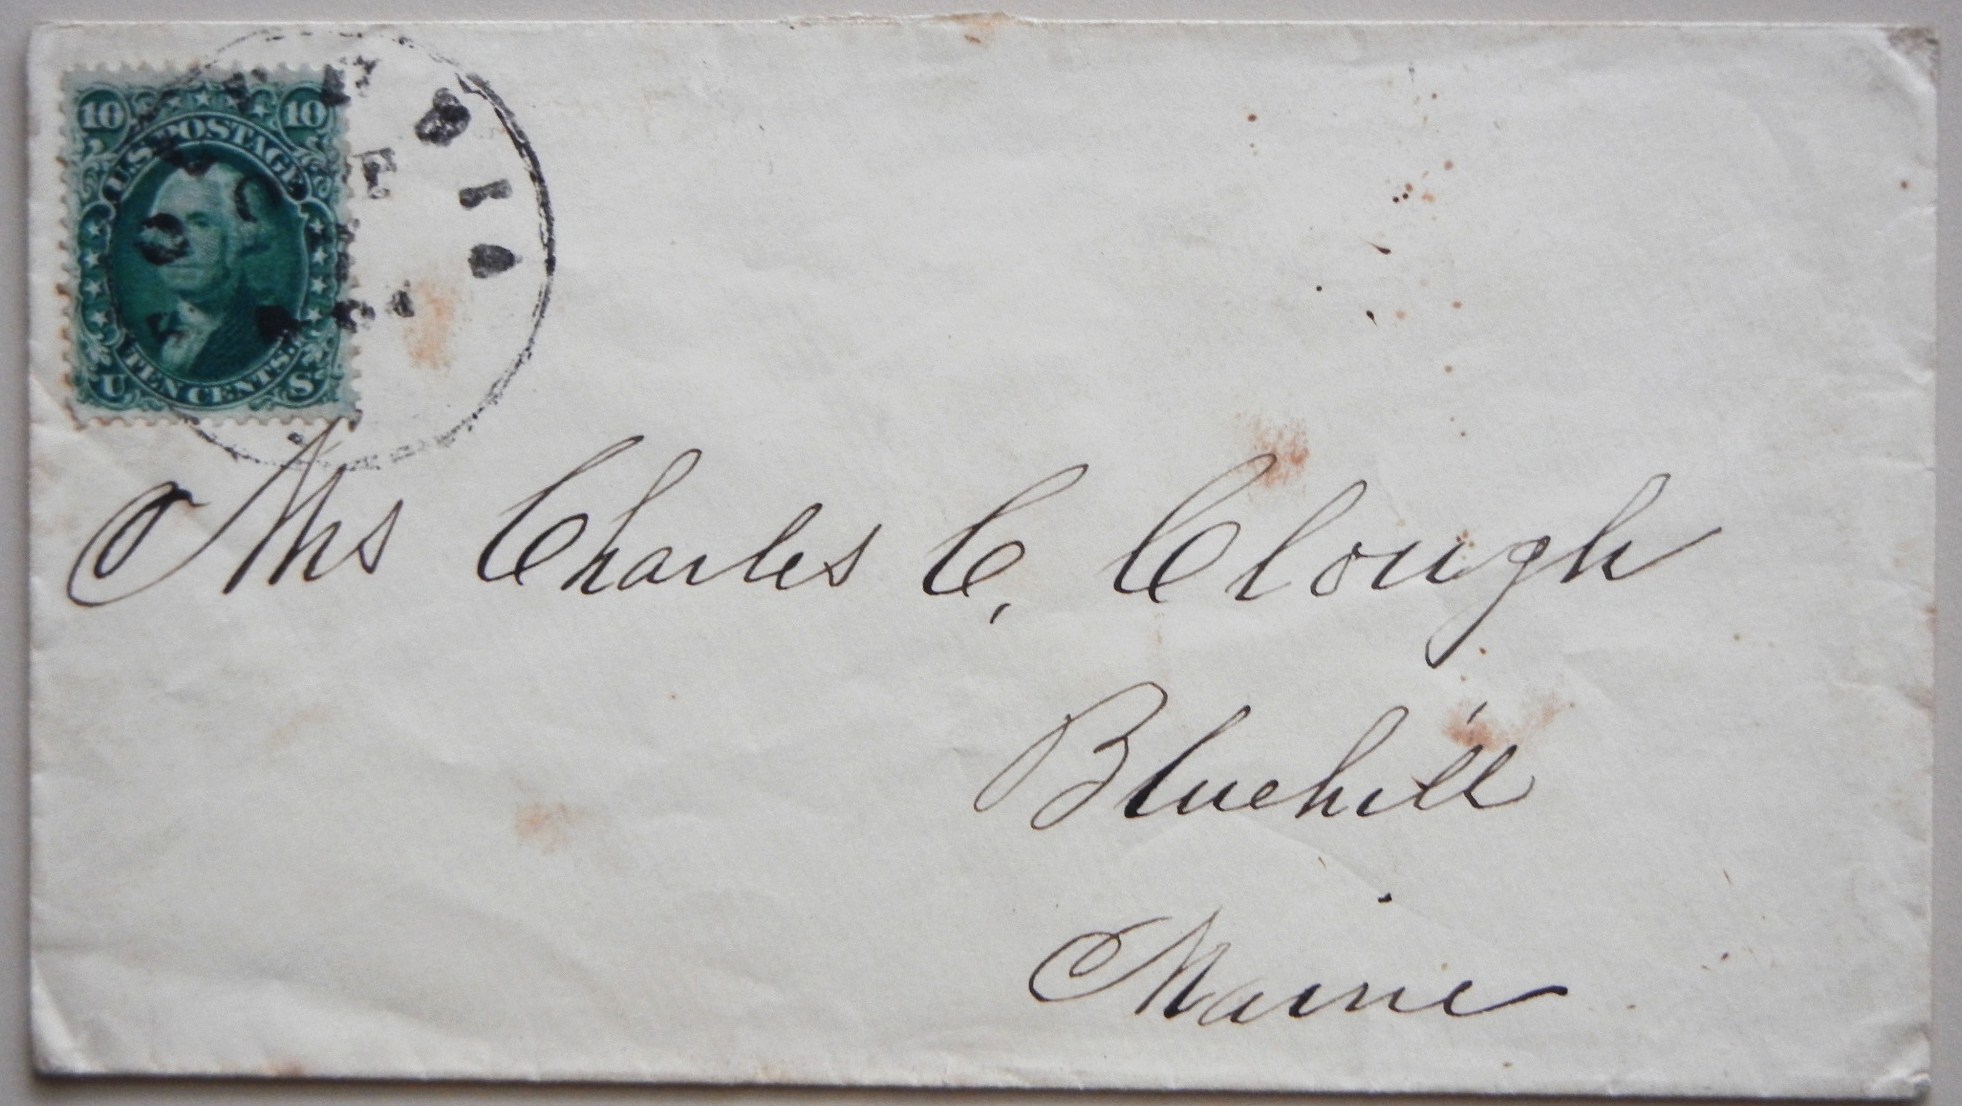 10 10
U.S. POSTAGE
TEN CENTS.
U S
Mrs Charles C, Clough
Bluehill
Maine